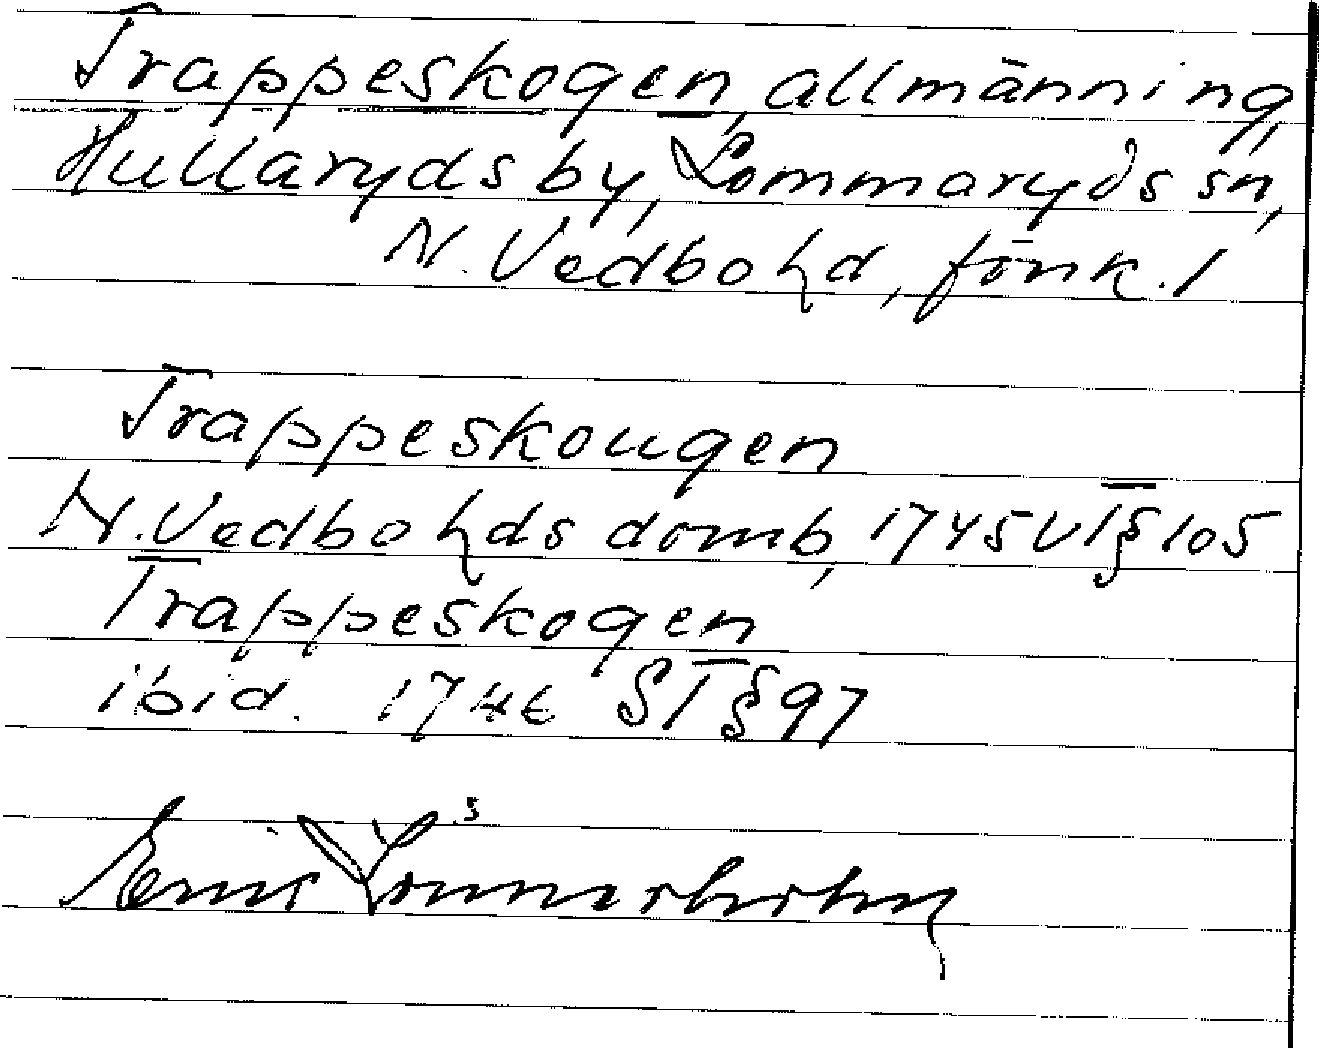 Trappeskogen, allmänning,
Hullaryds by, Lommaryds sn,
N. Vedbo hd, Jönk. l
Trappeskougen
N. Vedbo hds domb, 1745 VI § 105
Trappeskogen
ibid. 1746 ST § 97